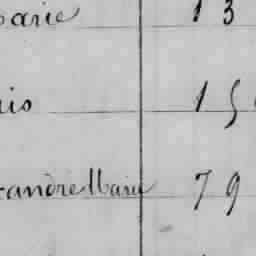 arie 13
is 15
andre Marie 79